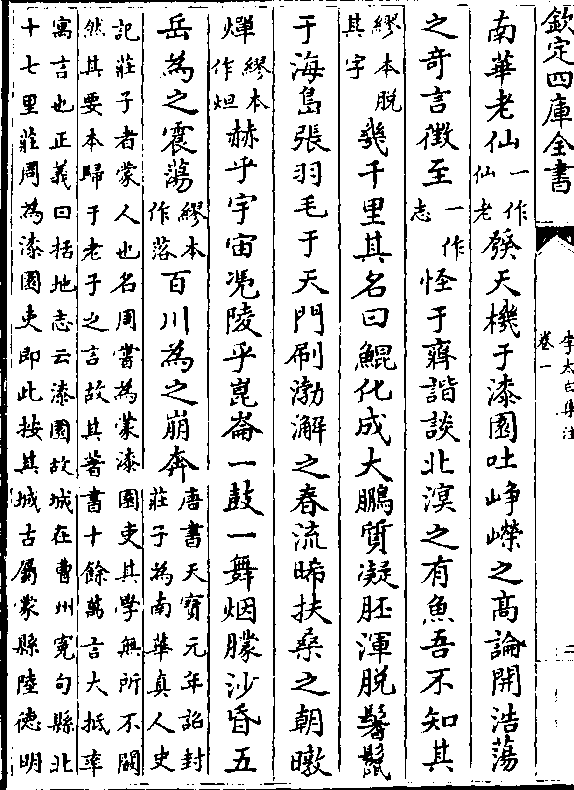 欽定四庫全書
李太白集注
卷一
二
南華老仙一作仙老發天機于漆園吐崢嶸之高論開浩蕩
之奇言徵至一作志怪于齊諧談北溟之有魚吾不知其
繆本脫其字幾千里其名曰鯤化成大鵬質凝胚渾脫鬐鬣
于海島張羽毛于天門刷渤澥之春流晞扶桑之朝暾
燀繆本作烜赫乎宇宙凴陵乎崑崙一鼓一舞烟朦沙昏五
岳為之震蕩繆本作落百川為之崩奔唐書天寶元年詔封莊子為南華真人史
記莊子者蒙人也名周嘗為蒙漆園吏其學無所不闚
然其要本歸于老子之言故其著書十餘萬言大抵率
寓言也正義曰括地志云漆園故城在曹州寃句縣北
十七里莊周為漆園吏即此按其城古屬蒙縣陸德明